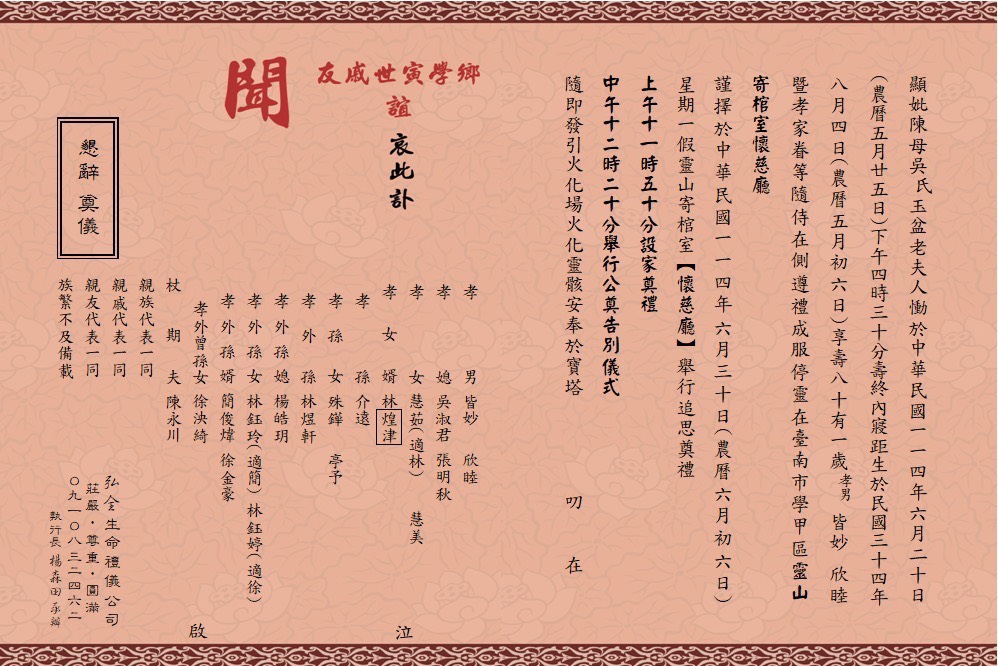 顯妣陳母吳氏玉盆老夫人慟於中華民國一一四年六月二十日
(農曆五月廿五日)下午四時三十分壽終內寢距生於民國三十四年
八月四日(農曆五月初六日)享壽八十有一歲孝男 皆妙 欣睦
暨孝家眷等隨侍在側遵禮成服停靈在臺南市學甲區靈山
寄棺室懷慈廳
謹擇於中華民國一一四年六月三十日(農曆六月初六日)
星期一假靈山寄棺室【懷慈廳】舉行追思奠禮
上午十一時五十分設家奠禮
中午十二時二十分舉行公奠告別儀式
隨即發引火化場火化靈骸安奉於寶塔
叨 在
鄉學寅世戚友
誼
聞
哀此訃
孝 男 皆妙 欣睦
孝 媳 吳淑君 張明秋
孝 女 慧茹(適林) 慧美
孝 女 婿 林煌津
孝 孫 介遠
孝 孫 女 殊鏵 亭予
孝 外 孫 林煜軒
孝 外 孫 媳 楊皓玥
孝 外 孫 女 林鈺玲(適簡) 林鈺婷(適徐)
孝 外 孫 婿 簡俊煒 徐金豪
孝外曾孫女 徐泱綺
杖 期 夫 陳永川
泣
啟
親族代表一同
親戚代表一同
親友代表一同
族繁不及備載
懇辭 奠儀
弘全生命禮儀公司
莊嚴・尊重・圓滿
〇九一〇八三二四六二
執行長 楊森田 承辦